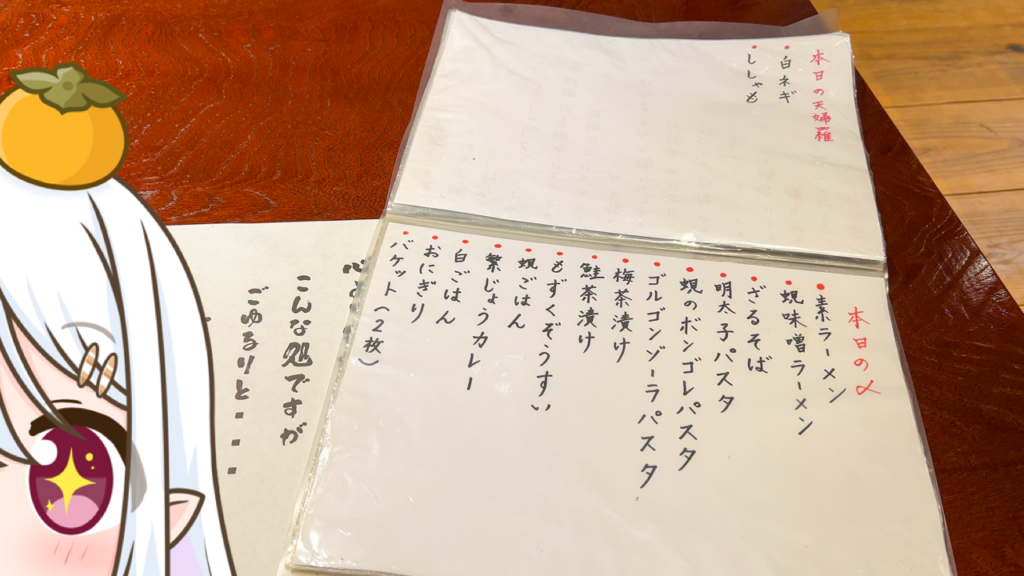 本日の天婦羅
・白ネギ
・ししゃも
本日の〆
・素ラーメン
・蜆味噌ラーメン
・ざるそば
・明太子パスタ
・蜆のボンゴレパスタ
・ゴルゴンゾーラパスタ
・梅茶漬け
・鮭茶漬け
・もずくぞうすい
・蜆ごはん
・繁じょうカレー
・白ごはん
・おにぎり
・バケット(2枚)
こんな処ですが
ごゆるりと...